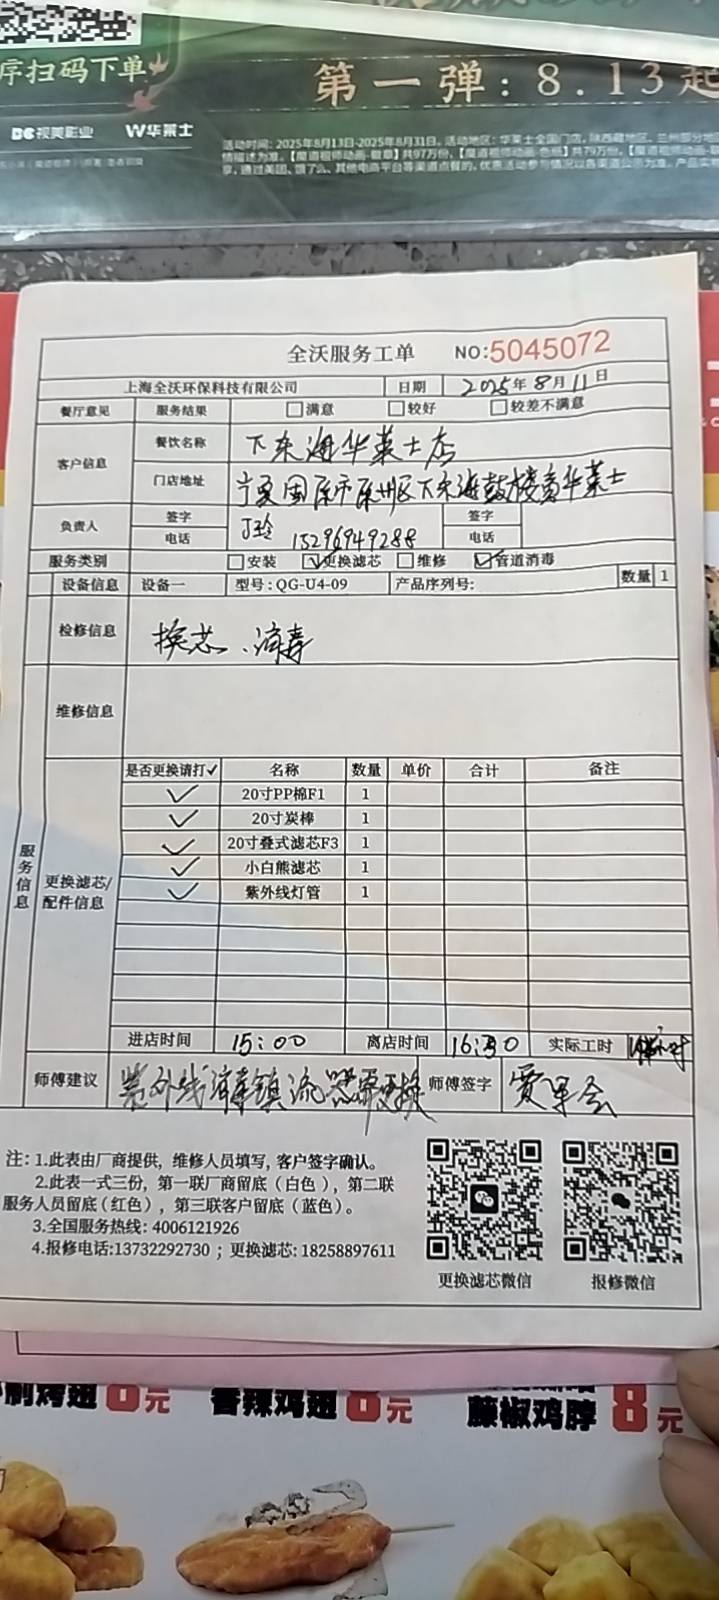 序扫码下单
第一弹: 8.13起
视美影业 W华莱士
活动时间: 2025年8月13日-2025年8月31日。活动地区: 华莱士全国门店
全沃服务工单 NO:5045072
上海全沃环保科技有限公司 日期 2025年8月11日
餐厅意见 服务结果 □满意 □较好 □较差不满意
客户信息 餐饮名称 下东海华莱士店
门店地址 宁夏固原市原州区下东海鼓楼旁华莱士
负责人 签字 丁玲 签字
电话 15296949288 电话
服务类别 □安装 ☑更换滤芯 □维修 ☑管道消毒
设备信息 设备一 型号:QG-U4-09 产品序列号: 数量 1
检修信息 换芯、消毒
维修信息
服务信息
更换滤芯/配件信息
是否更换请打✓ 名称 数量 单价 合计 备注
✓ 20寸PP棉F1 1
✓ 20寸炭棒 1
✓ 20寸叠式滤芯F3 1
✓ 小白熊滤芯 1
✓ 紫外线灯管 1
进店时间 15:00 离店时间 16:30 实际工时
师傅建议 紫外线消毒镇流器需更换 师傅签字 贾军会
注: 1.此表由厂商提供, 维修人员填写, 客户签字确认。
2.此表一式三份, 第一联厂商留底(白色), 第二联
服务人员留底(红色), 第三联客户留底(蓝色)。
3.全国服务热线: 4006121926
4.报修电话:13732292730 ; 更换滤芯: 18258897611
更换滤芯微信 报修微信
制烤翅 6元 香辣鸡翅 8元 藤椒鸡脖 8元